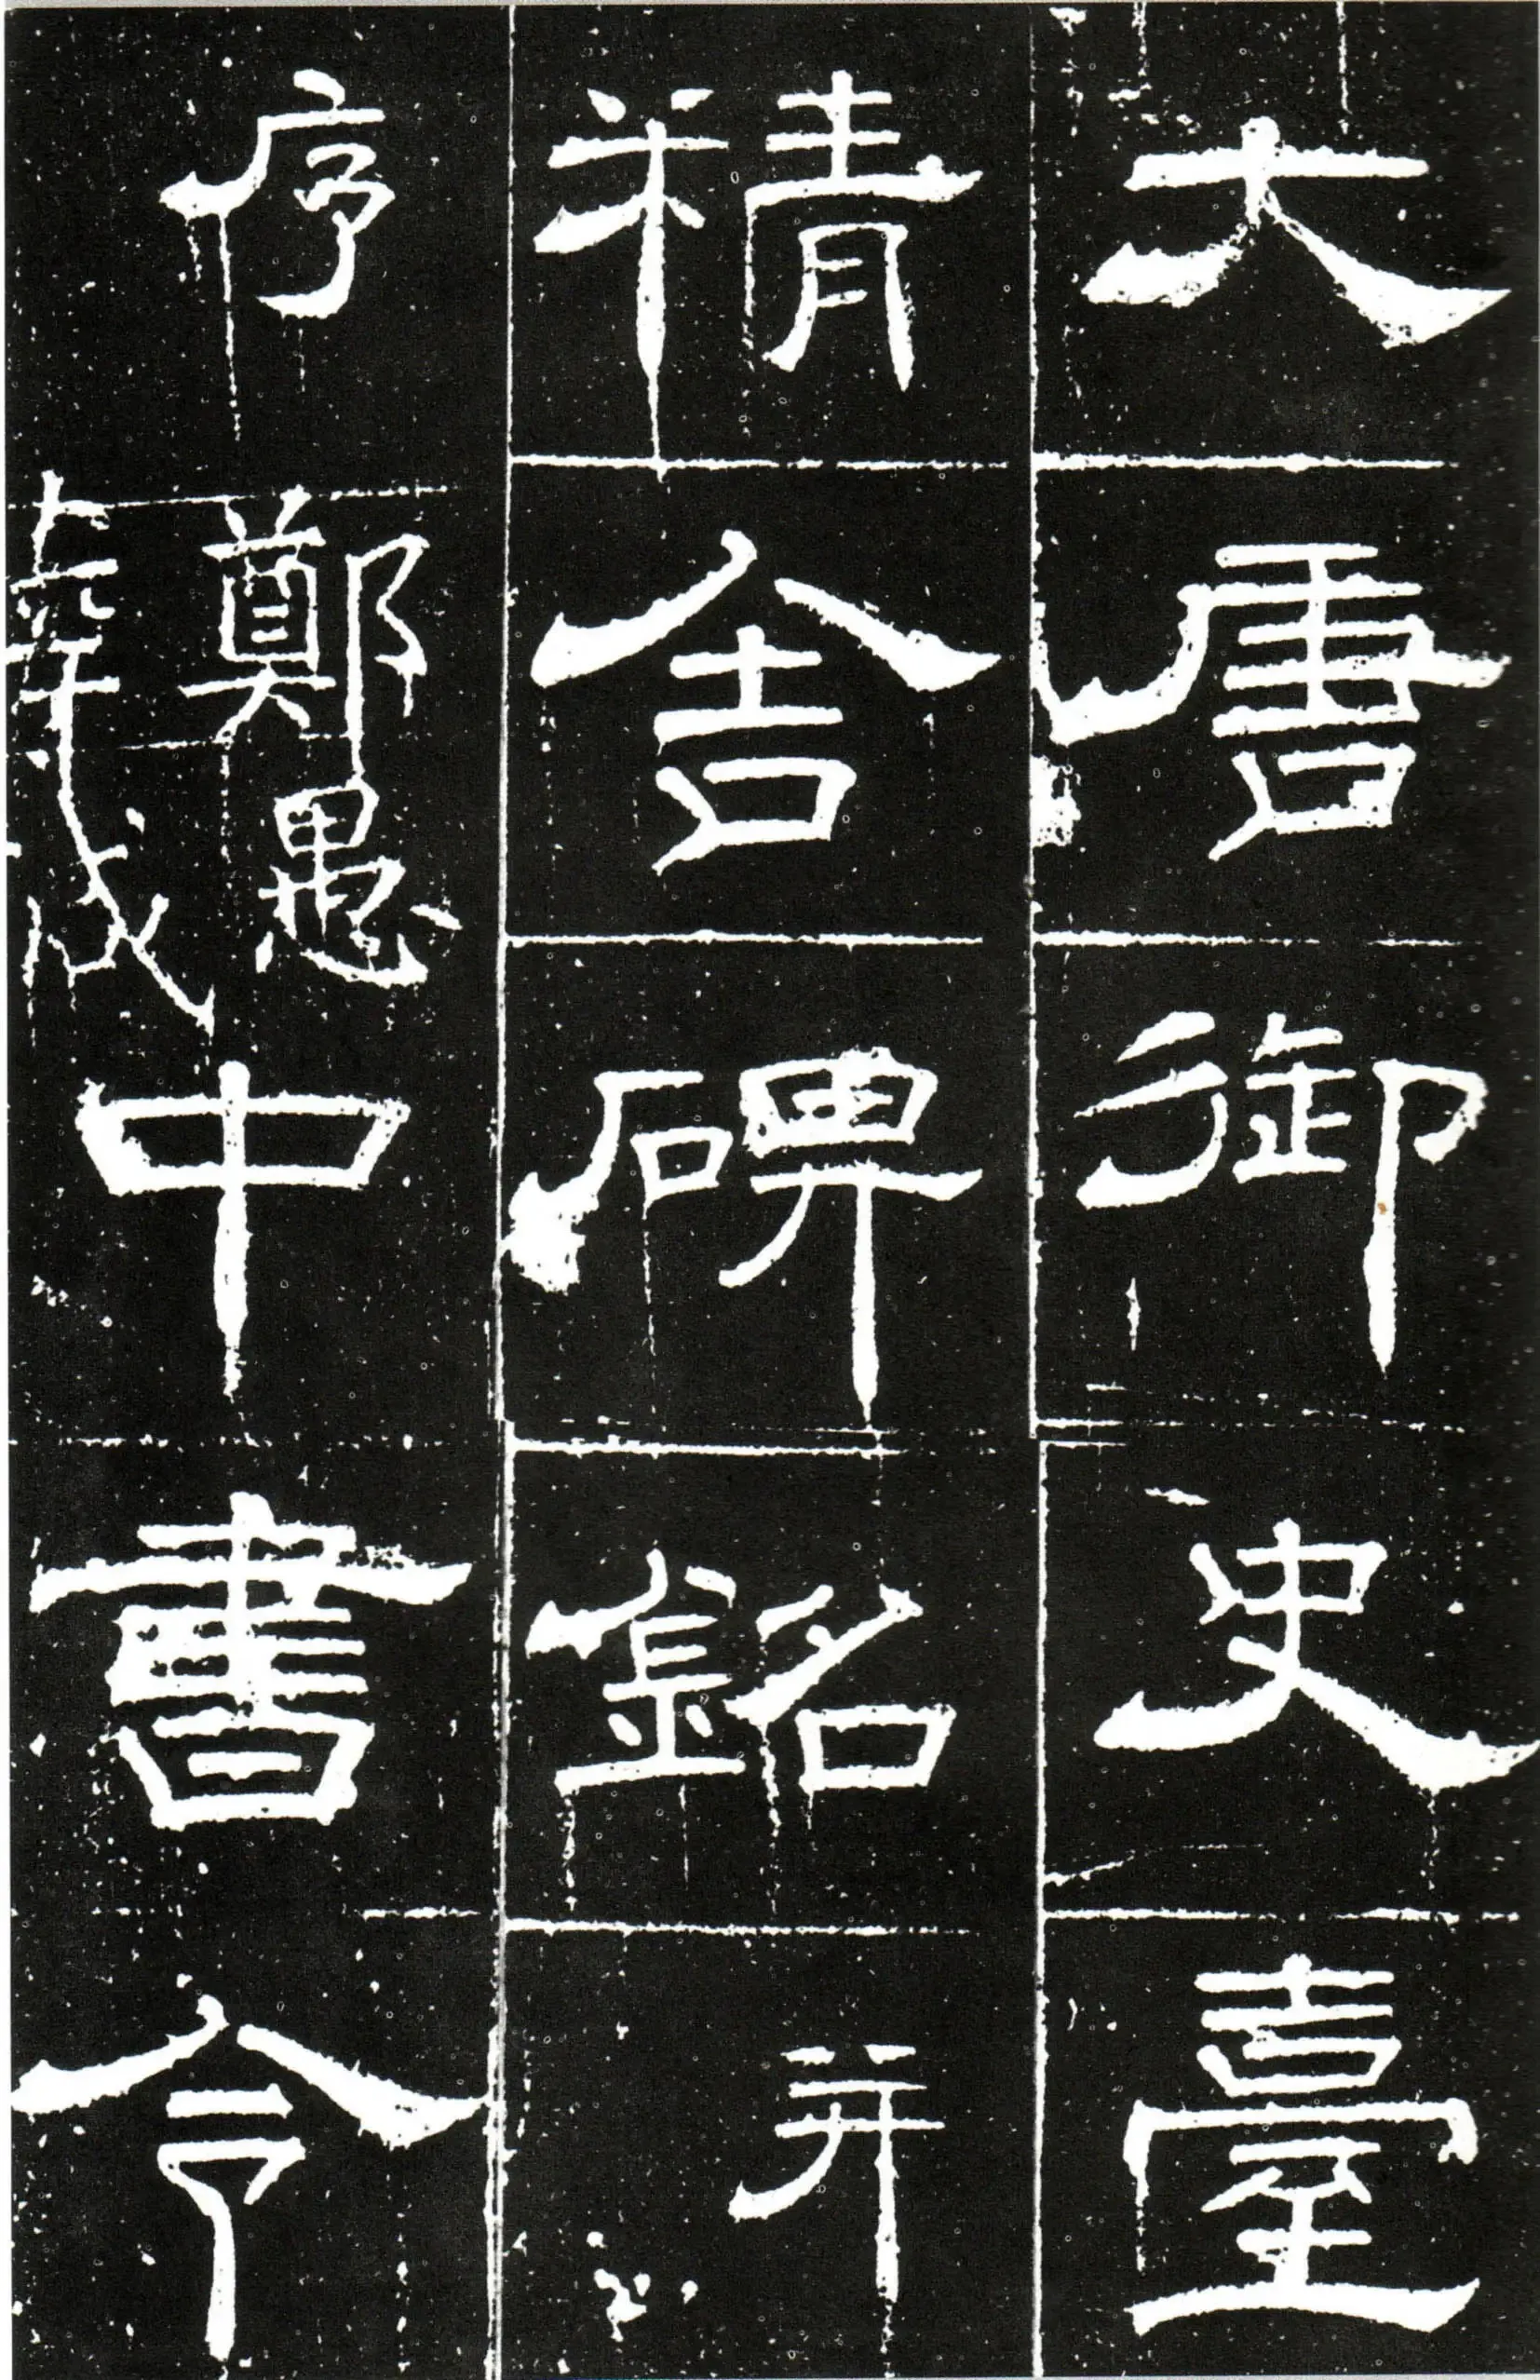 大唐御史臺
精舍碑銘并
序
鄭愚
中書令